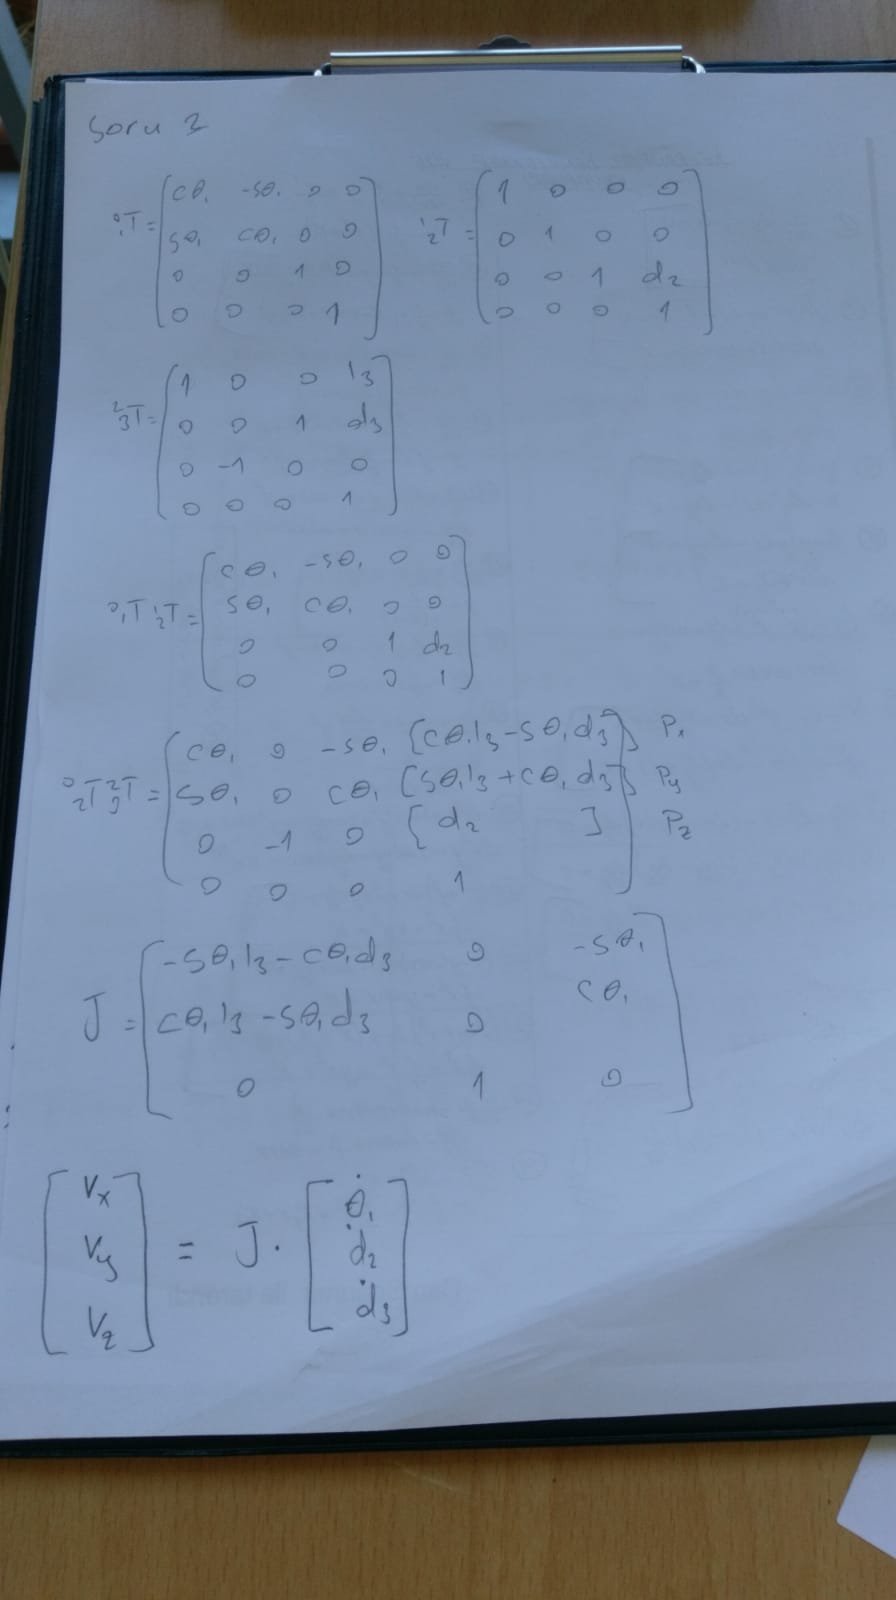 Soru 2
⁰₁T = [cθ₁ -sθ₁ 0 0 ¹₂T = [1 0 0 0
sθ₁ cθ₁ 0 0 0 1 0 0
0 0 1 0 0 0 1 d₂
0 0 0 1] 0 0 0 1]
²₃T = [1 0 0 l₃
0 0 1 d₃
0 -1 0 0
0 0 0 1]
⁰₁T ¹₂T = [cθ₁ -sθ₁ 0 0
sθ₁ cθ₁ 0 0
0 0 1 d₂
0 0 0 1]
⁰₂T ²₃T = [cθ₁ 0 -sθ₁ [cθ₁l₃-sθ₁d₃] Px
sθ₁ 0 cθ₁ [sθ₁l₃+cθ₁d₃] Py
0 -1 0 [d₂] Pz
0 0 0 1]
J = [-sθ₁l₃-cθ₁d₃ 0 -sθ₁
cθ₁l₃-sθ₁d₃ 0 cθ₁
0 1 0]
[Vx [θ̇₁
Vy = J · ḋ₂
Vz] ḋ₃]